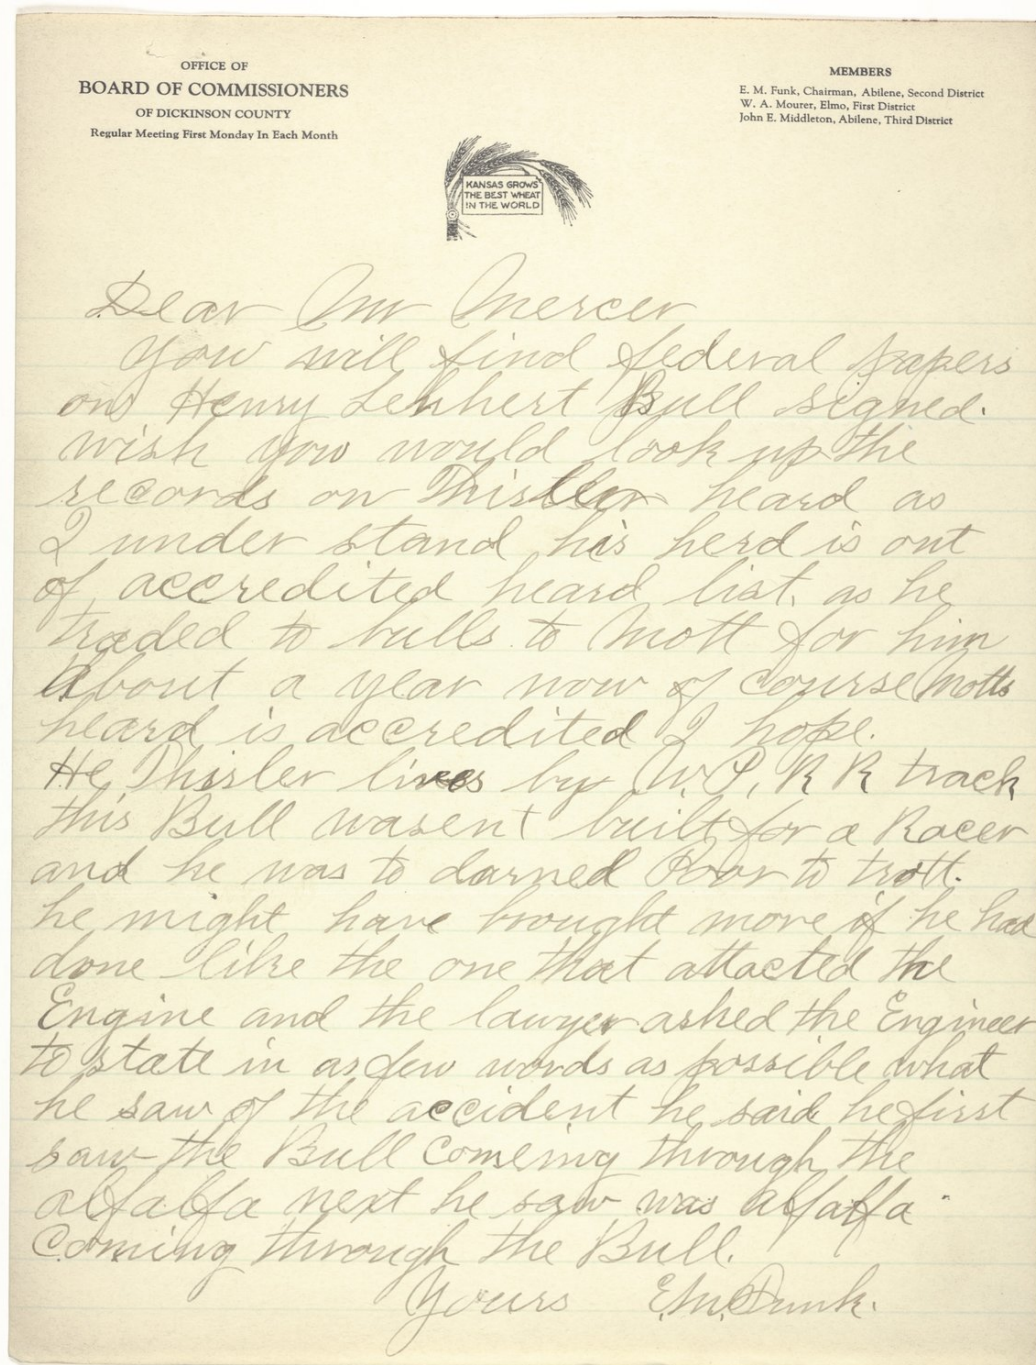 OFFICE OF
BOARD OF COMMISSIONERS
OF DICKINSON COUNTY
Regular Meeting First Monday In Each Month
MEMBERS
E. M. Funk, Chairman, Abilene, Second District
W. A. Mourer, Elmo, First District
John E. Middleton, Abilene, Third District
KANSAS GROWS
THE BEST WHEAT
IN THE WORLD
Dear Mr Mercer
You will find federal papers
on Henry Lenhert Bull signed.
wish you would look up the
records on Thisller heard as
I under stand his herd is out
of accredited heard list. as he
traded to bulls to Mott for him
About a year now of course Motts
heard is accredited I hope.
He, Thisler lives by U.P. R R track
this Bull wasent built for a Racer
and he was to darned Poor to trott.
he might have brought more if he had
done like the one that attacted the
Engine and the lawyer asked the Engineer
to state in as few words as possible what
he saw of the accident he said he first
saw the Bull Comeing through the
alfalfa next he saw was alfalfa
Coming through the Bull.
Yours E.M. Funk.